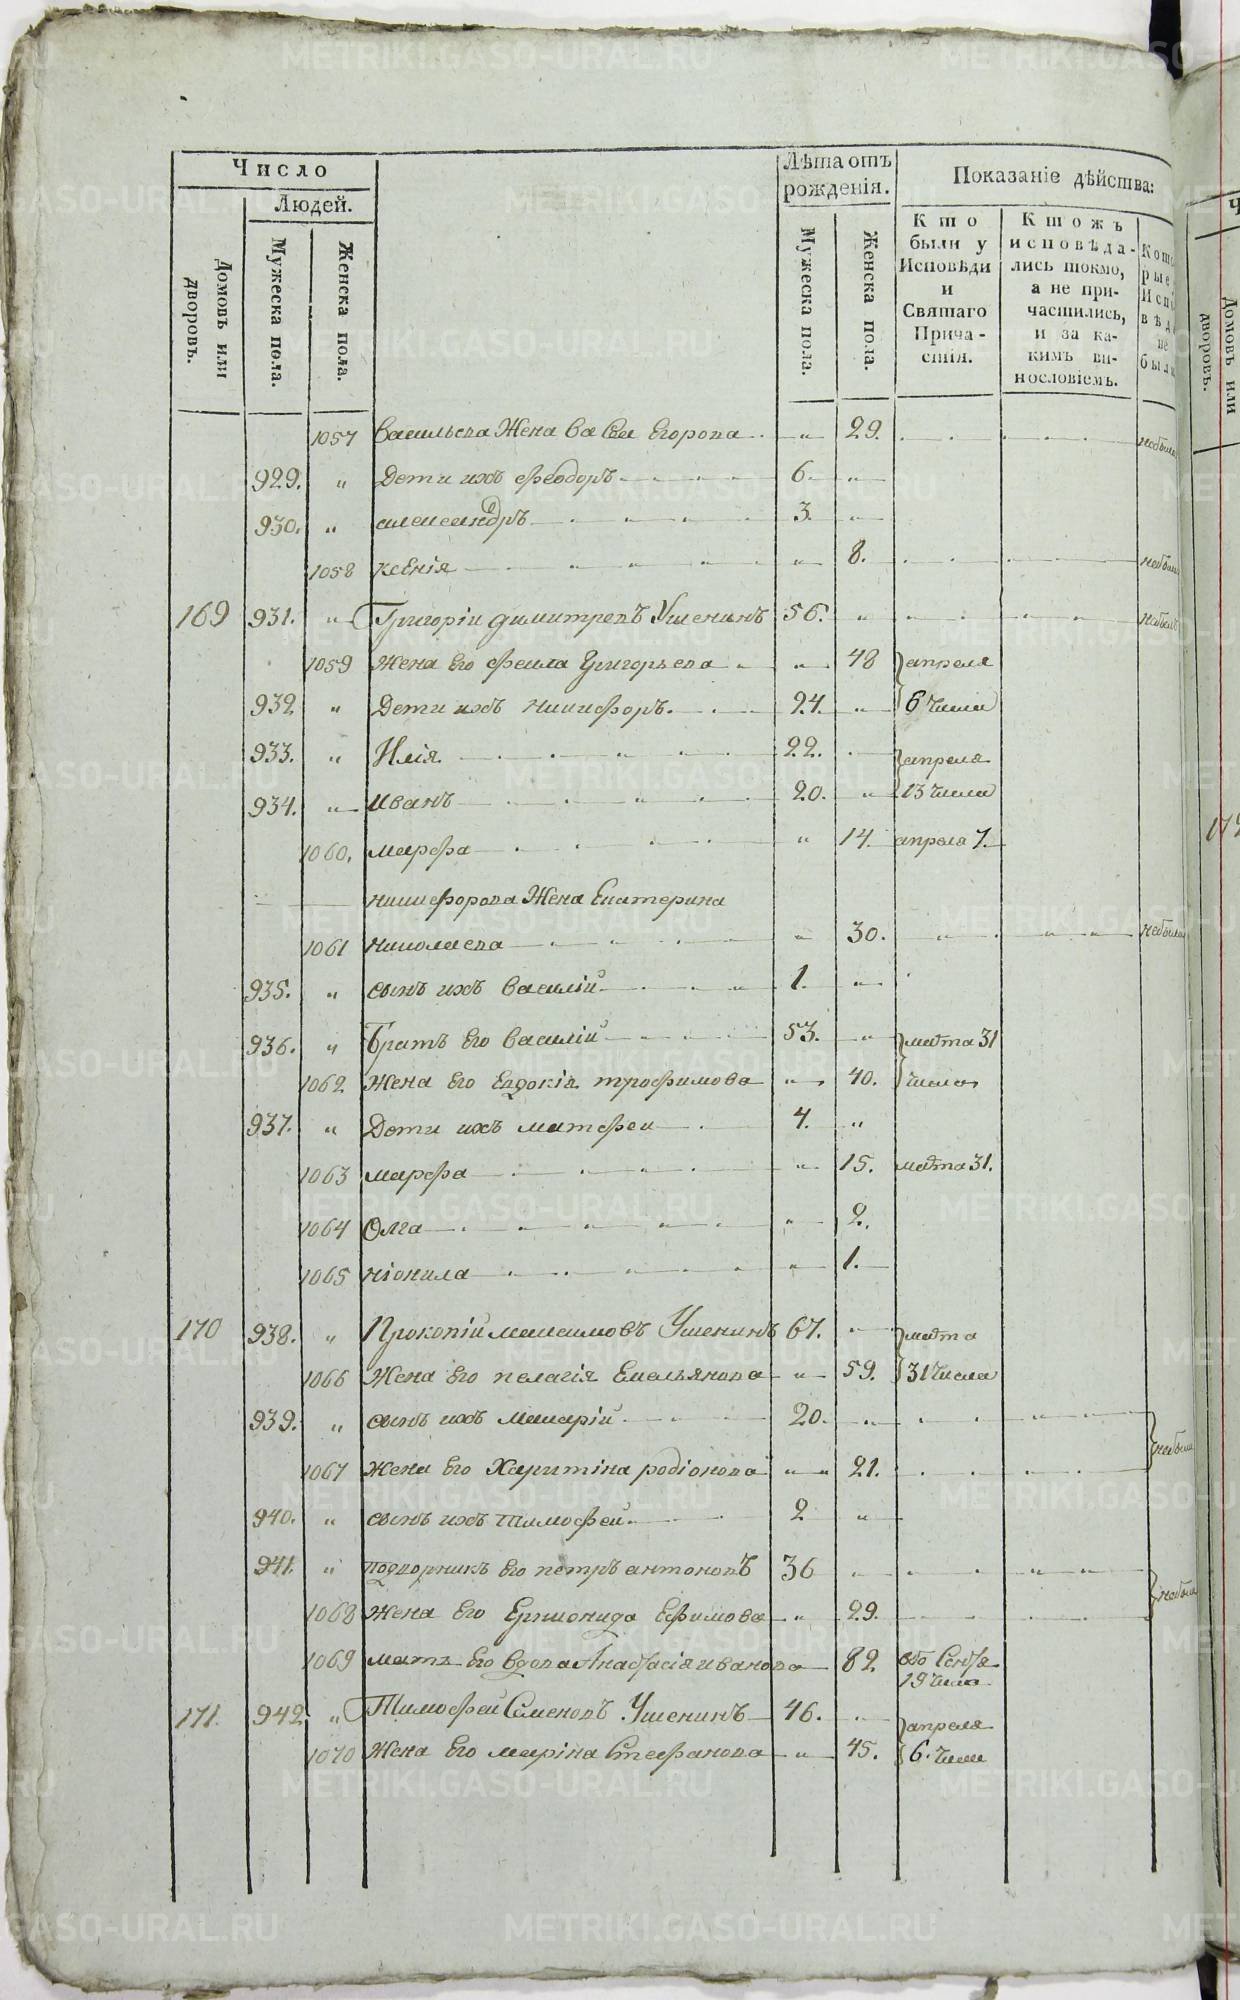 Число
Людей.
Домовъ или дворовъ.
Мужеска пола.
Женска пола.
Лѣта отъ рожденія.
Мужеска пола.
Женска пола.
Показаніе дѣйства:
Кто были у Исповѣди и Святаго Прича-стія.
Ктожъ исповѣда-лись токмо, а не при-частились, и за ка-кимъ ви-нословіемъ.
1057 Васильева Жена Егорова „ 29. небыла
929. „ Дети ихъ Феодоръ 6. „
930. „ александръ 3. „
1058 ксенія „ 8. небыла
169 931. „ Григоріи димитревъ Ушенинъ 56. „ небылъ
1059 Жена Его Фекла Григорьева „ 48 апреля
932 „ Дети ихъ никифоръ. 24. „ 6 числа
933. „ Илія 22. апреля
934. „ иванъ 20. „ 13 числа
1060. марфа „ 14. апреля 7.
никифорова Жена Екатерина
1061 николаева „ 30. небыла
935. „ сынъ ихъ Василій 1. „
936. „ Братъ Его Василій 53. „ марта 31
1062 Жена Его Евдокія трофимова „ 40. числа
937. „ Дети ихъ матфеи 4. „
1063 марфа „ 15. марта 31.
1064 Олга „ 2.
1065 ніонила „ 1.
170 938. „ Прокопій максимовъ Ушенинъ 67. марта
1066 Жена Его пелагія Емельянова „ 59. 31 числа
939. „ сынъ ихъ макарій 20. „
1067 Жена Его Харитина родіонова „ 21. небыли
940. „ сынъ ихъ тимофей. 2 „
941. „ подворникъ Его петръ антоновъ 36 „
1068 Жена Его Ефимова „ 29. небыли
1069 мать Его вдова Анастасія иванова 82
19 числа
171. 942 „ Тимофей Семеновъ Ушенинъ 46. апреля
1070 Жена Его марина Стефанова „ 45. 6. числа
METRIKI.GASO-URAL.RU